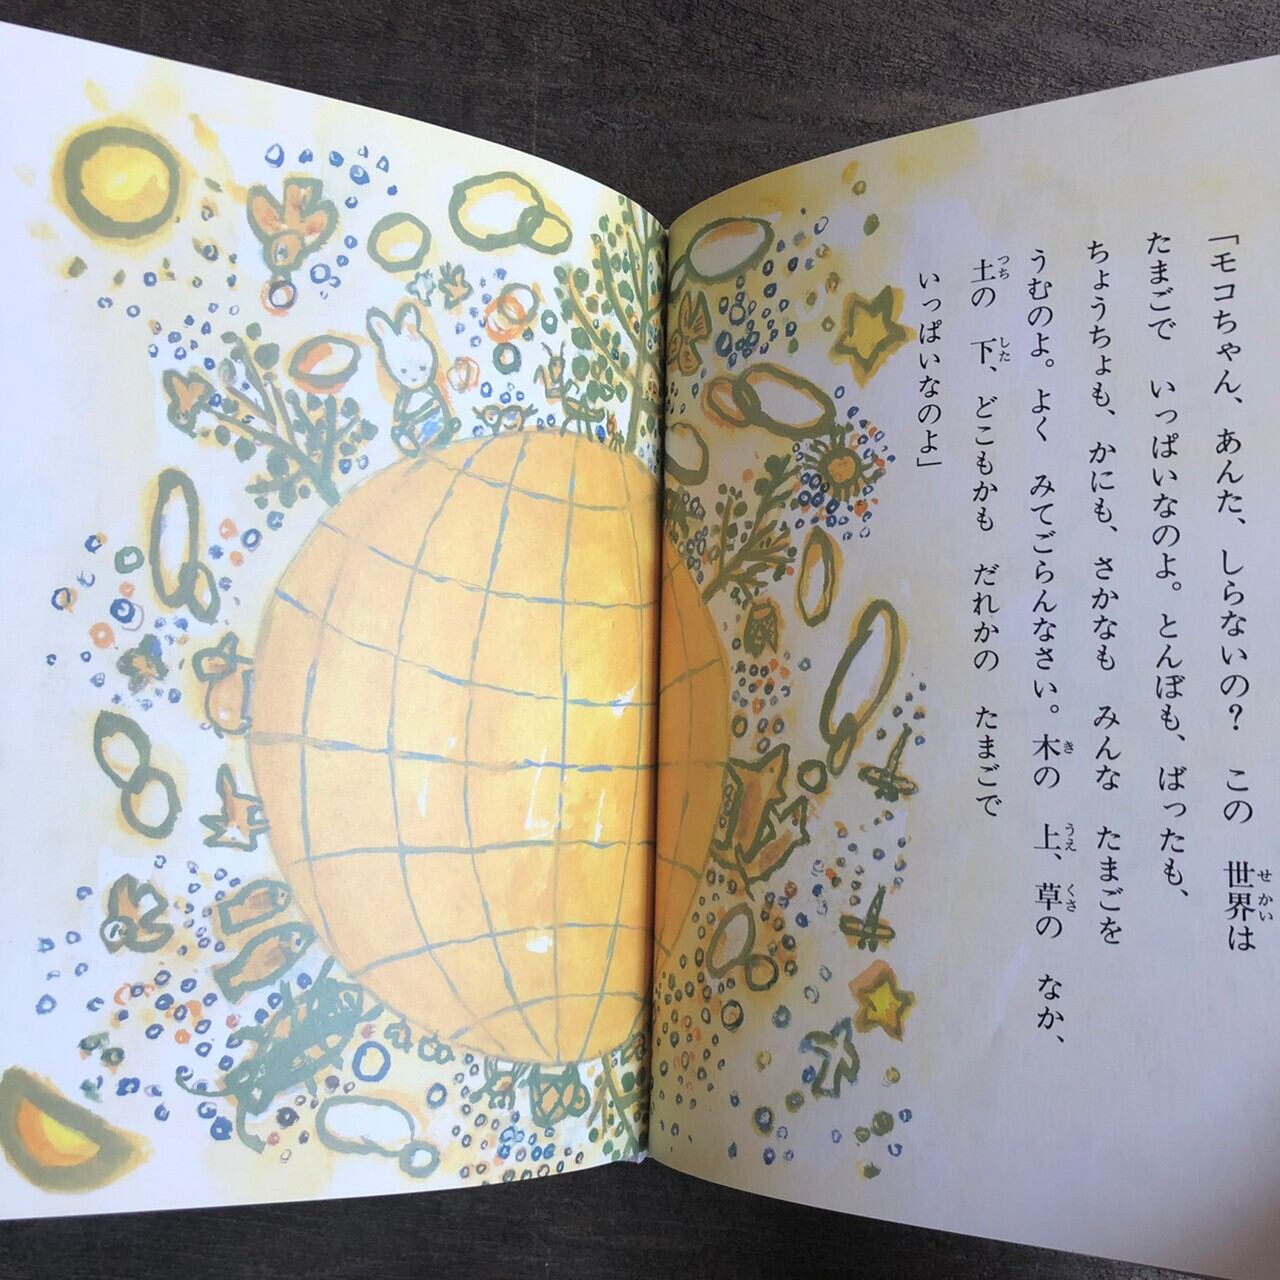 「モコちゃん、あんた、しらないの？　この　世界は
たまごで　いっぱいなのよ。とんぼも、ばったも、
ちょうちょも、かにも、さかなも　みんな　たまごを
うむのよ。よく　みてごらんなさい。木の　上、草の　なか、
土の　下、どこもかも　だれかの　たまごで
いっぱいなのよ」